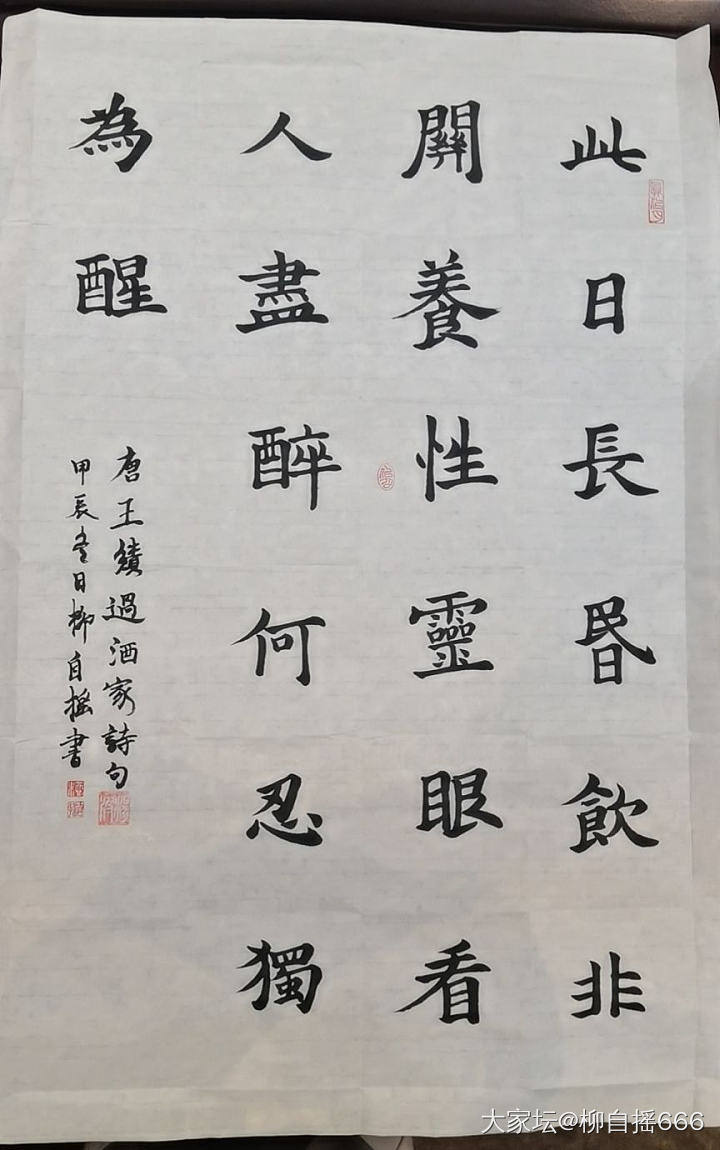 此日長昏飲非
關養性靈眼看
人盡醉何忍獨
為醒
唐王績過酒家詩句
甲辰冬日柳自摇書
大家坛@柳自摇666